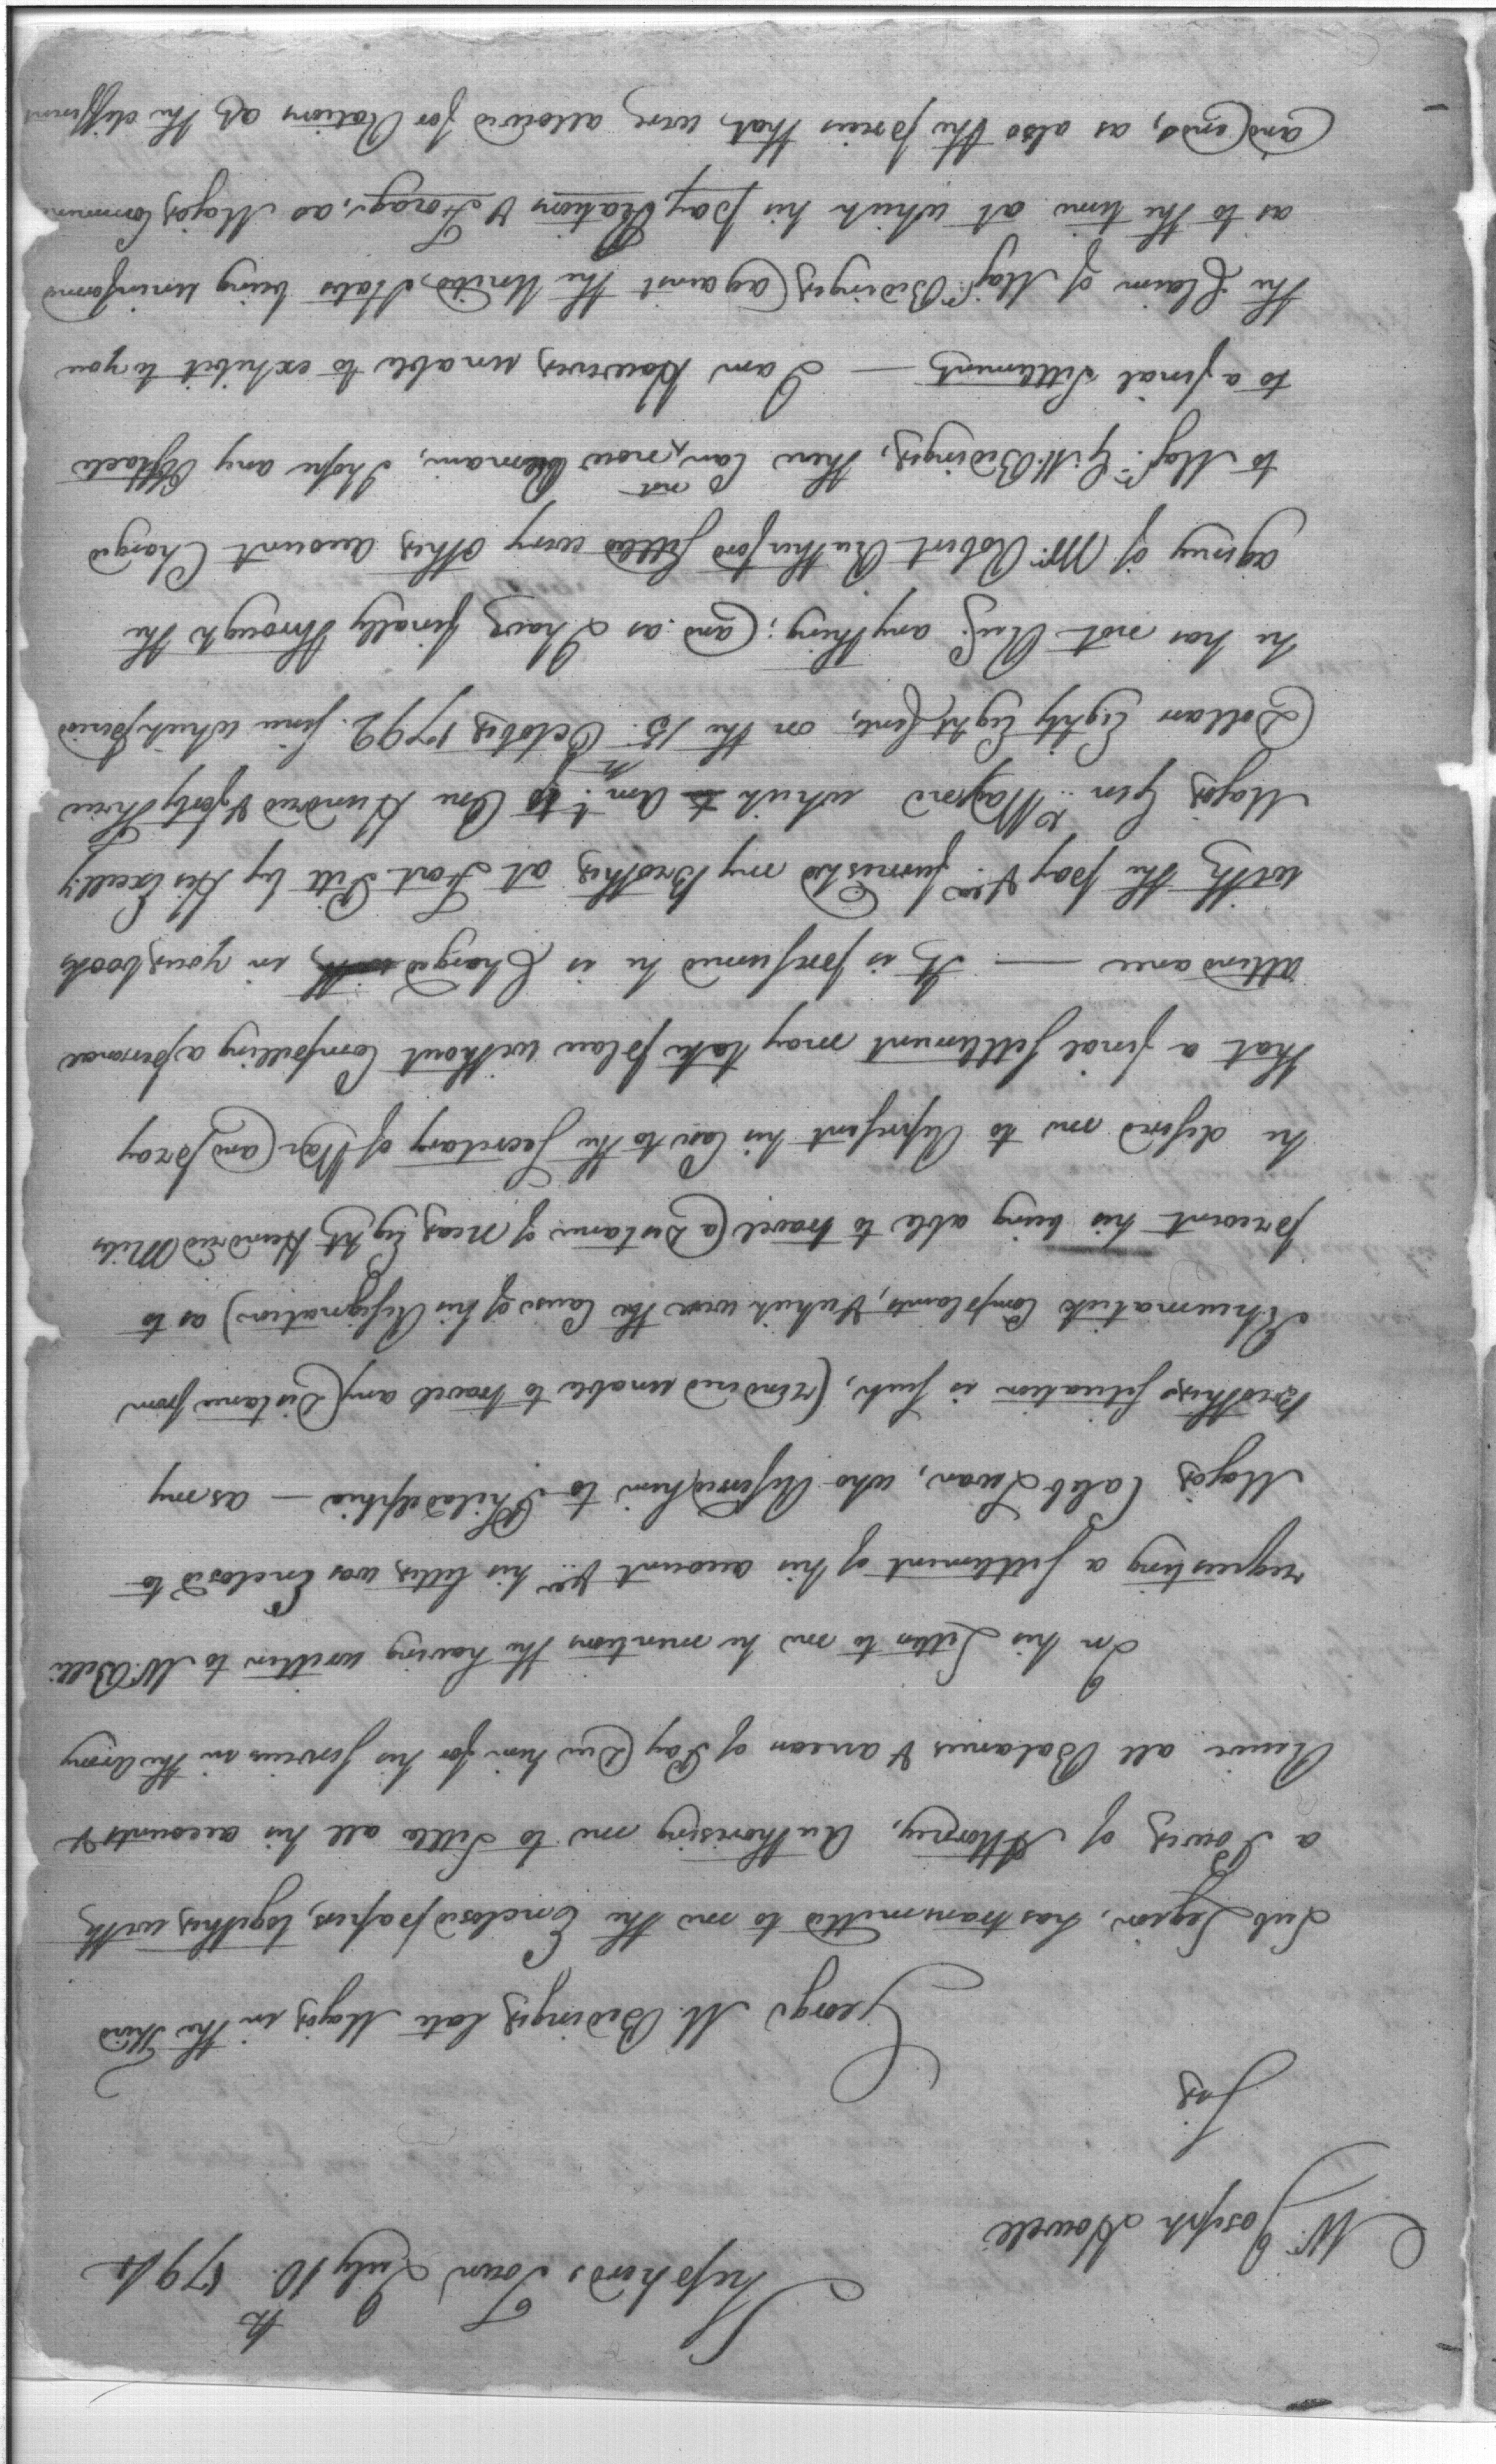 Shepherds Town July 10th 1794
Mr. Joseph Howell
Sir
George M. Bedinger late Major in the Third
Sub Legion, has transmitted to me the Enclosed papers, together with
a Power of Attorney, Authorising me to Settle all his accounts &
Receive all Balances & arrears of Pay Due him for his Services in the Army
In his Letter to me he mentions the having written to Mr. Belli
requesting a Settlement of his account &ca his letter was Enclosed to
Major Caleb Swan, who Referred him to Philadelphia — as my
Brothers Situation is Such, (rendered unable to travel any Distance from
Rheumatick Complaints, & which were the Cause of his Resignation) as to
prevent his being able to travel a Distance of near Eight Hundred Miles
he desired me to Represent his Case to the Secretary of War and pray
that a final Settlement may take place without Compelling a personal
attendance — It is presumed he is Charged with, in your books
with the pay &ca furnished my Brother at Fort Pitt by His Excelly
Major Gen. Wayne which to Amt. to One Hundred & forty Three
Dollars Eighty Eight Cents, on the 15th October 1792. Since which period
he has not Recd. anything; and as I have finally through the
agency of Mr. Robert Rutherford Settled every other account Charged
to Majr. G. M. Bedinger, there Can not now Remain, I hope any Obstacle
to a final Settlement — I am However, unable to exhibit to you
the Claim of Majr. Bedinger against the United States being uninformed
as to the time at which his pay, Rations & Forage, as Major Commence
and end, as also the prices that were allowed for Rations at the different